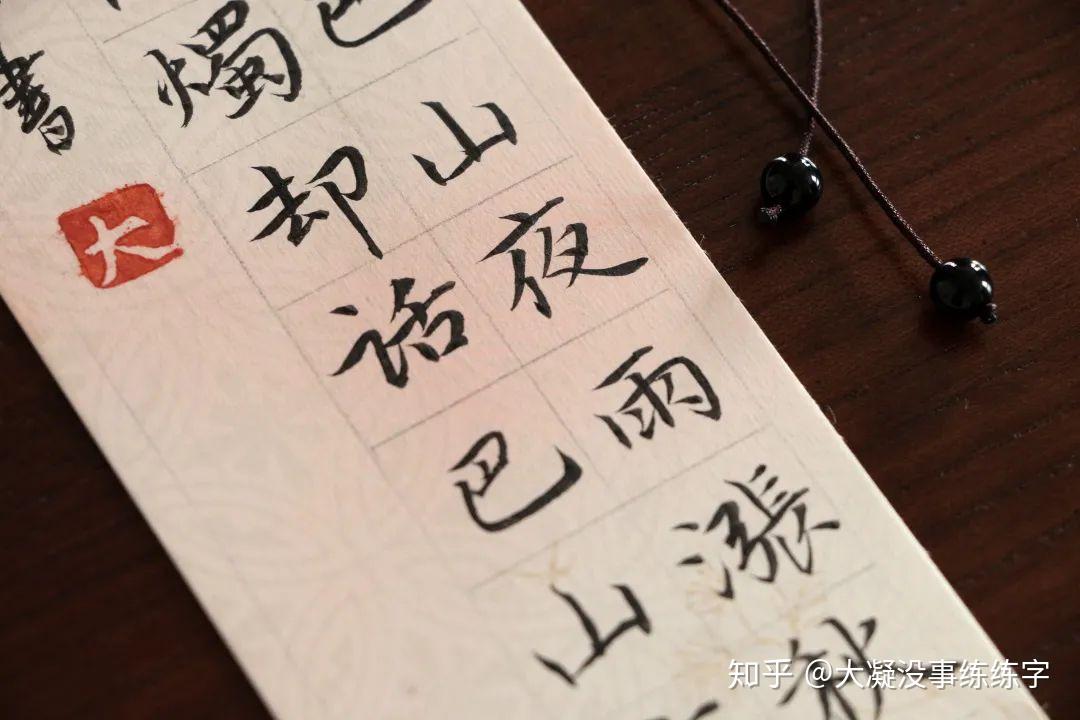 巴山夜雨漲秋
燭却話巴山
書
大
知乎 @大凝没事练练字